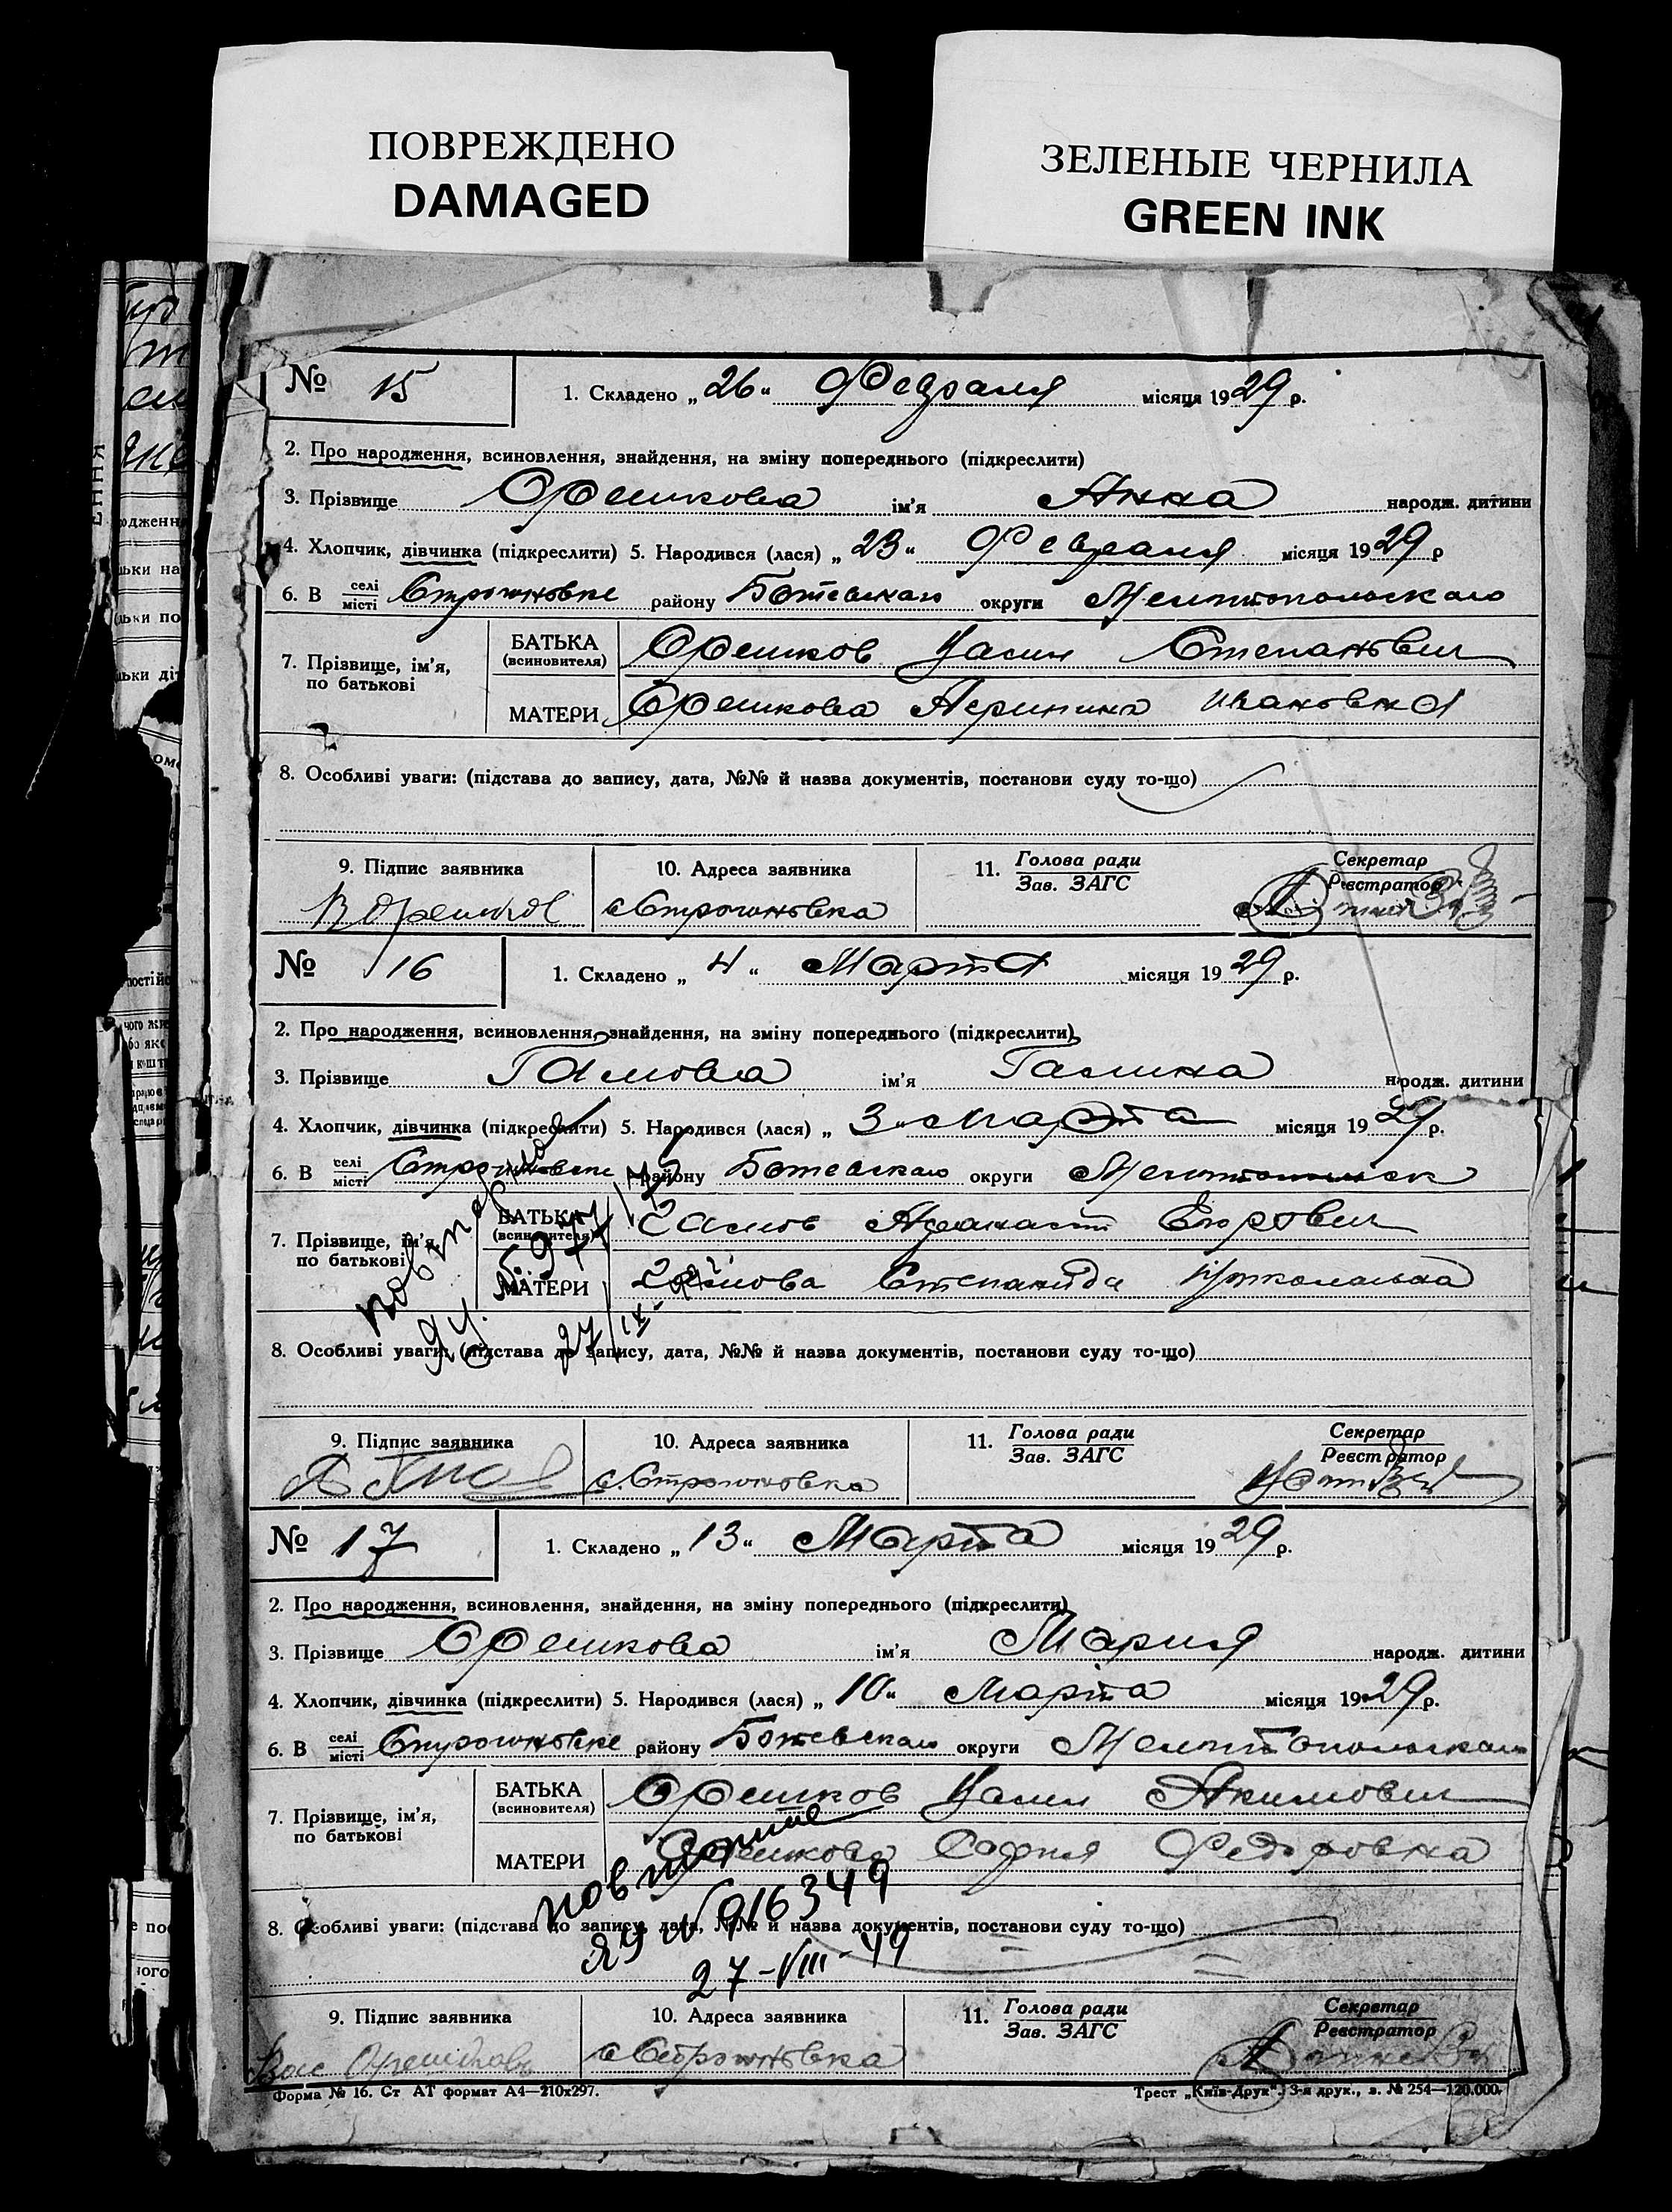 ПОВРЕЖДЕНО
DAMAGED
ЗЕЛЕНЫЕ ЧЕРНИЛА
GREEN INK
№ 15
1. Складено „ 26 " Февраля місяця 1929 р.
2. Про народження, всиновлення, знайдення, на зміну попереднього (підкреслити)
3. Прізвище Орешкова ім'я Анна народж. дитини
4. Хлопчик, дівчинка (підкреслити) 5. Народився (лася) „ 23 " Февраля місяця 1929 р
6. В селі місті Строгоновке району Ботевскаго округи Мелитопольскаго
7. Прізвище, ім'я, по батькові
БАТЬКА (всиновителя) Орешков Степанович
МАТЕРИ Орешкова Ивановна
8. Особливі уваги: (підстава до запису, дата, №№ й назва документів, постанови суду то-що)
9. Підпис заявника
10. Адреса заявника
11. Голова ради Зав. ЗАГС
Секретар Реєстратор
В Орешков
с Строгоновка
№ 16
1. Складено „ 4 " Марта місяця 1929 р.
2. Про народження, всиновлення, знайдення, на зміну попереднього (підкреслити)
3. Прізвище Гамова ім'я Галина народж. дитини
4. Хлопчик, дівчинка (підкреслити) 5. Народився (лася) „ 3 " Марта місяця 1929 р.
6. В селі місті Строгоновке району Ботевскаго округи
7. Прізвище, ім'я, по батькові
БАТЬКА (всиновителя) Гамов Егорович
МАТЕРИ Гамова Степанида
8. Особливі уваги: (підстава до запису, дата, №№ й назва документів, постанови суду то-що)
9. Підпис заявника
10. Адреса заявника
11. Голова ради Зав. ЗАГС
Секретар Реєстратор
с. Строгоновка
№ 17
1. Складено „ 13 " Марта місяця 1929 р.
2. Про народження, всиновлення, знайдення, на зміну попереднього (підкреслити)
3. Прізвище Орешкова ім'я Мария народж. дитини
4. Хлопчик, дівчинка (підкреслити) 5. Народився (лася) „ 10 " Марта місяця 1929 р.
6. В селі місті Строгоновке району Ботевскаго округи Мелитопольскаго
7. Прізвище, ім'я, по батькові
БАТЬКА (всиновителя) Орешков Акимович
МАТЕРИ Орешкова София Федоровна
8. Особливі уваги: (підстава до запису, дата, №№ й назва документів, постанови суду то-що)
ЯУ № 916349
27-VIII-49
9. Підпис заявника
10. Адреса заявника
11. Голова ради Зав. ЗАГС
Секретар Реєстратор
Вас Орешков
с Строгоновка
Форма № 16. Ст АТ формат А4—210x297.
Трест „Київ-Друк". 3-я друк., з. № 254—120.000.